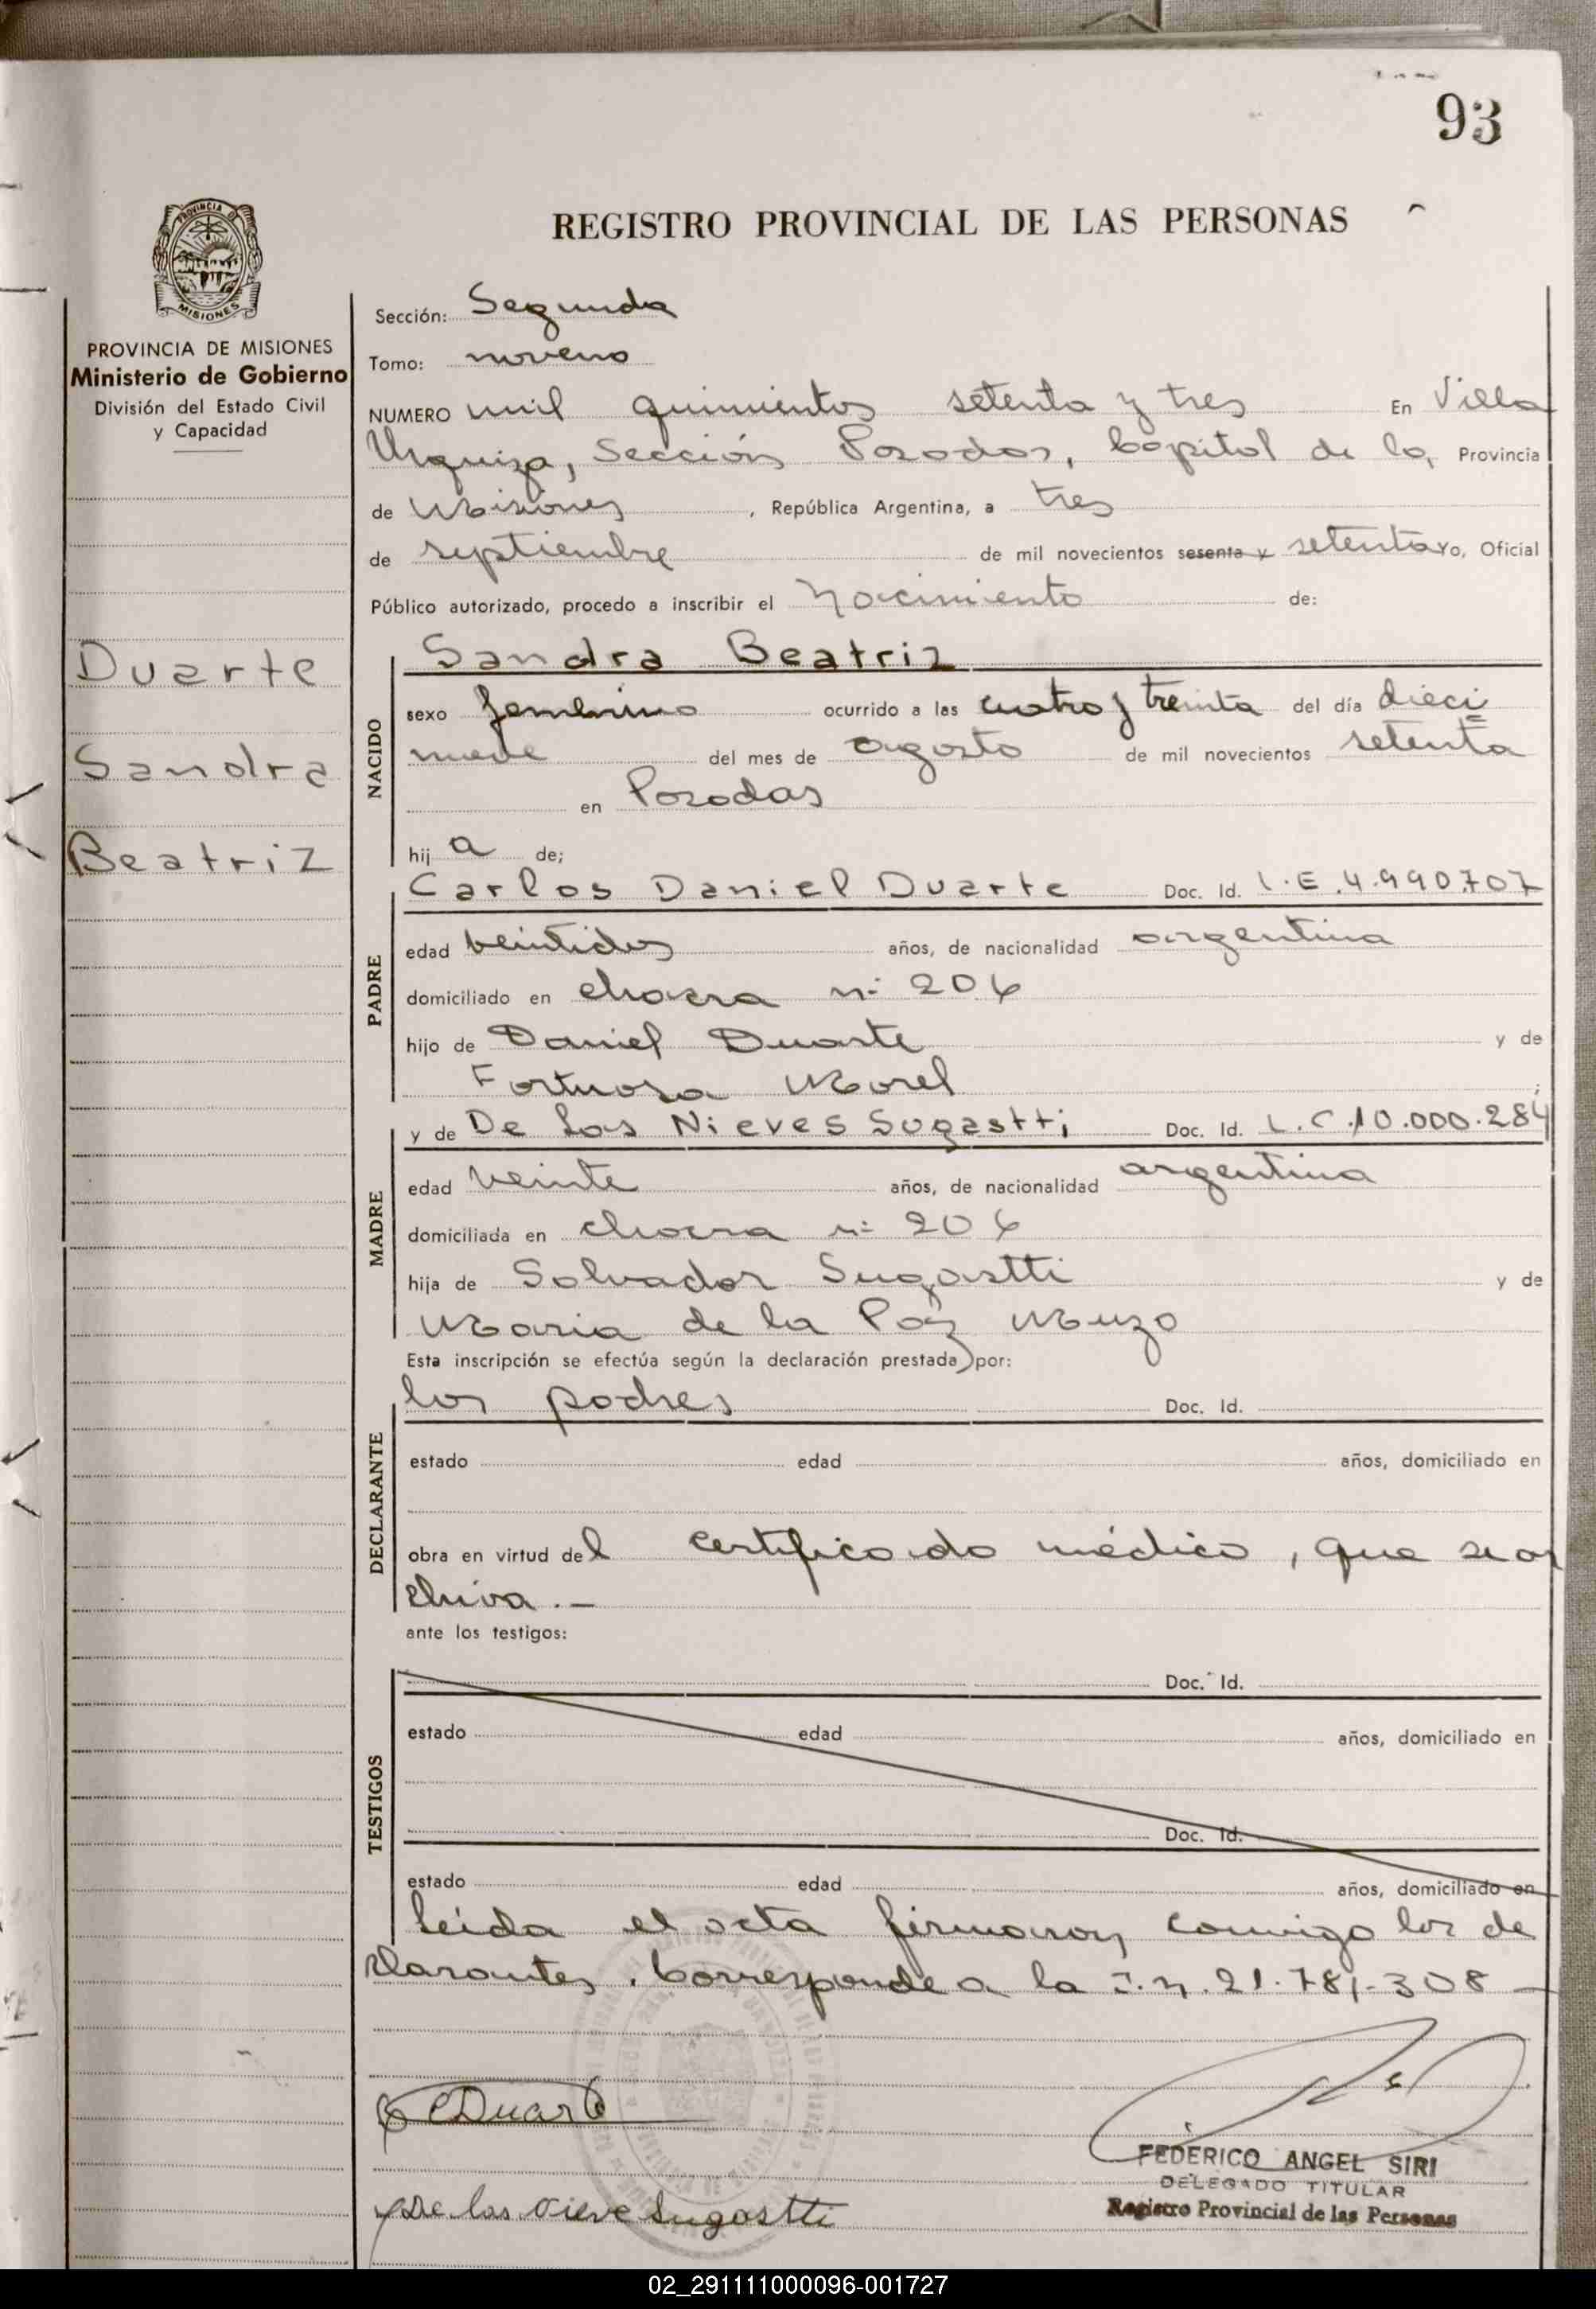 93
REGISTRO PROVINCIAL DE LAS PERSONAS
PROVINCIA DE
MISIONES
PROVINCIA DE MISIONES
Ministerio de Gobierno
División del Estado Civil
y Capacidad
Duarte
Sandra
Beatriz
Sección: Segunda
Tomo: noveno
NUMERO mil quinientos setenta y tres En Villa
Urquiza, Sección Posadas, Capital de la, Provincia
de Misiones, República Argentina, a tres
de septiembre de mil novecientos sesenta y setenta yo, Oficial
Público autorizado, procedo a inscribir el Nacimiento de:
NACIDO
Sandra Beatriz
sexo femenino ocurrido a las cuatro y treinta del día dieci=
nueve del mes de agosto de mil novecientos setenta
en Posadas
hij a de;
PADRE
Carlos Daniel Duarte Doc. Id. L.E.4.990.707
edad veintidos años, de nacionalidad argentina
domiciliado en chacra nº 206
hijo de Daniel Duarte y de
Fortuosa Morel ;
MADRE
y de De Las Nieves Sugastti Doc. Id. L.C.10.000.284
edad veinte años, de nacionalidad argentina
domiciliada en chacra nº 206
hija de Salvador Sugastti y de
Maria de la Paz Muzo
Esta inscripción se efectúa según la declaración prestada por:
DECLARANTE
los padres Doc. Id.
estado edad años, domiciliado en
obra en virtud del certificado médico, que se ar
chiva.-
ante los testigos:
TESTIGOS
Doc. Id.
estado edad años, domiciliado en
Doc. Id.
estado edad años, domiciliado en
Leída el acta firmaron, conmigo los de
clarantes. Corresponde a la I.n. 21.781.308 -
C Duarte
De las Nieve Sugastti
FEDERICO ANGEL SIRI
DELEGADO TITULAR
Registro Provincial de las Personas
02_291111000096-001727